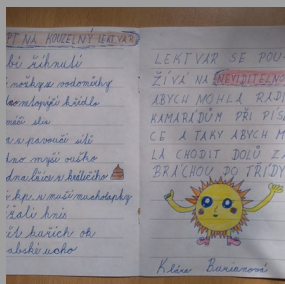 PT NA KOUZELNÝ LEKTVAR
bí říhnutí
nožky z vodoměrky
křídla
slin
v pavoučí sítě
no myší ouško
lžíce z králičího
kp. z muší mucholapky
hnis
kuřích ok
ďábské ucho
LEKTVAR SE POU
ŽÍVÁ NA NEVIDITELNO
ABYCH MOHLA RADI
KAMARÁDŮM PŘI PÍS
CE A TAKY ABYCH M
LA CHODIT DOLŮ ZA
BRÁCHOU DO TŘÍDY
Klára Burianová